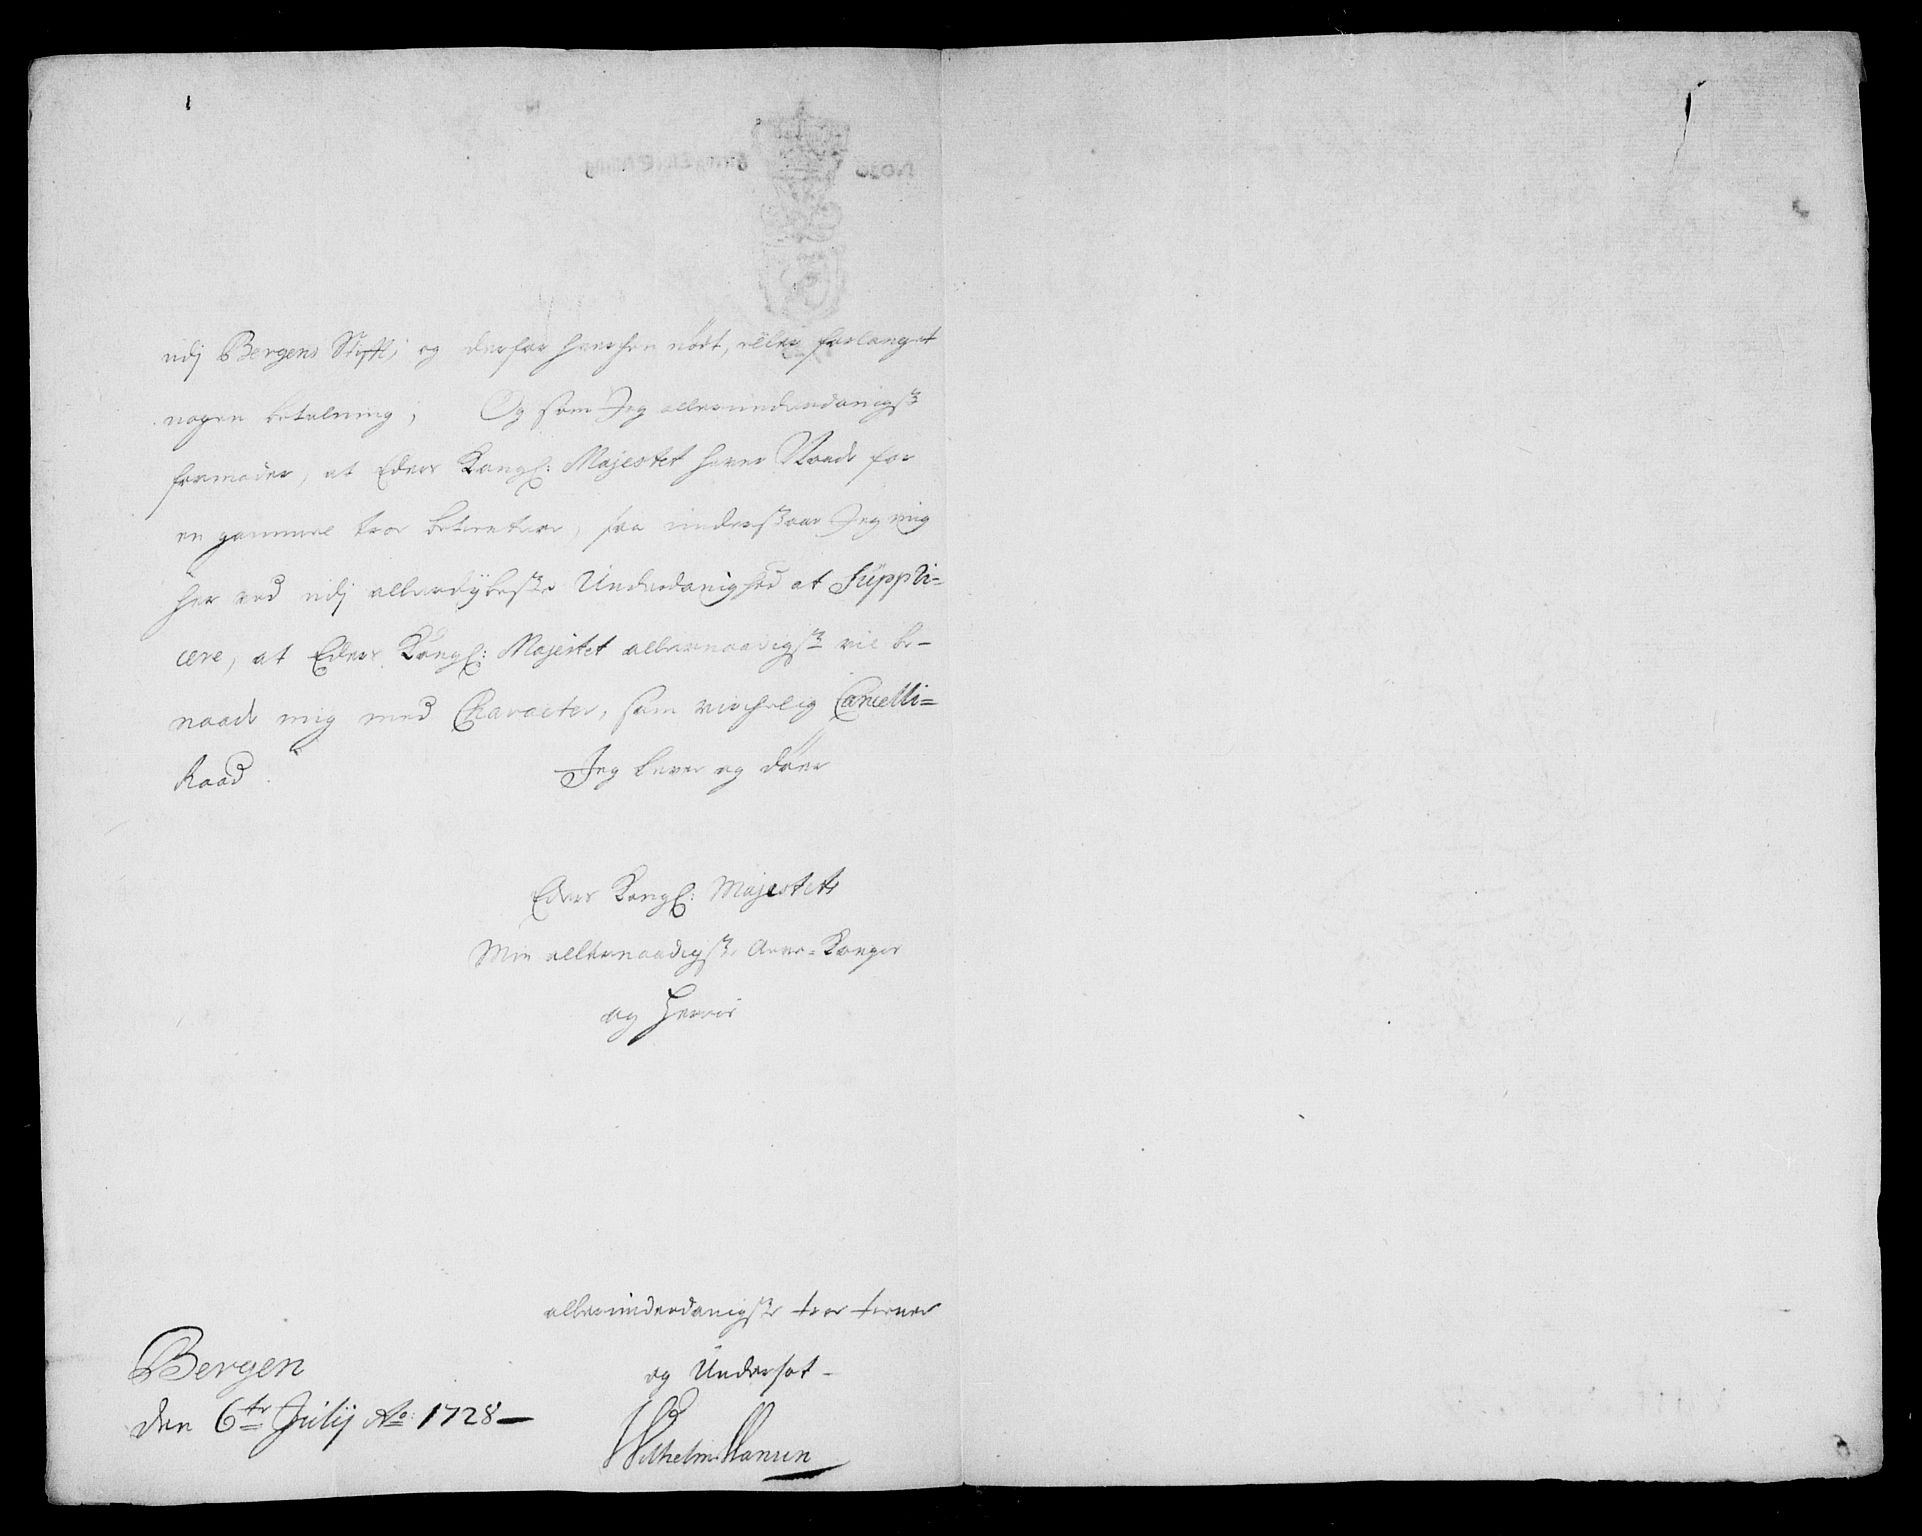 udj Bergens Stift; og derfor hverchen nödt, eller forlanget
nogen betalning; Og som Jeg allerunderdanigst
formoder, at Eders Kongl: Majestet haver Naade for
en gammel troe betientere, saa understaar Jeg mig
her ved udj allerdybeste Underdanighed at Suppli=
cere, at Eders Kongl: Majestet allernaadigst vil be-
naade mig med Character, som virchelig Cancelli=
Raad.
Jeg lever og döer
Eders Kongl: Majestets
Min allernaadigste Arve=Konges
og Herris
allerunderdanigste troe tiener
og Undersot
Bergen
den 6te Julij Ao: 1728
Wilhelm Hansen